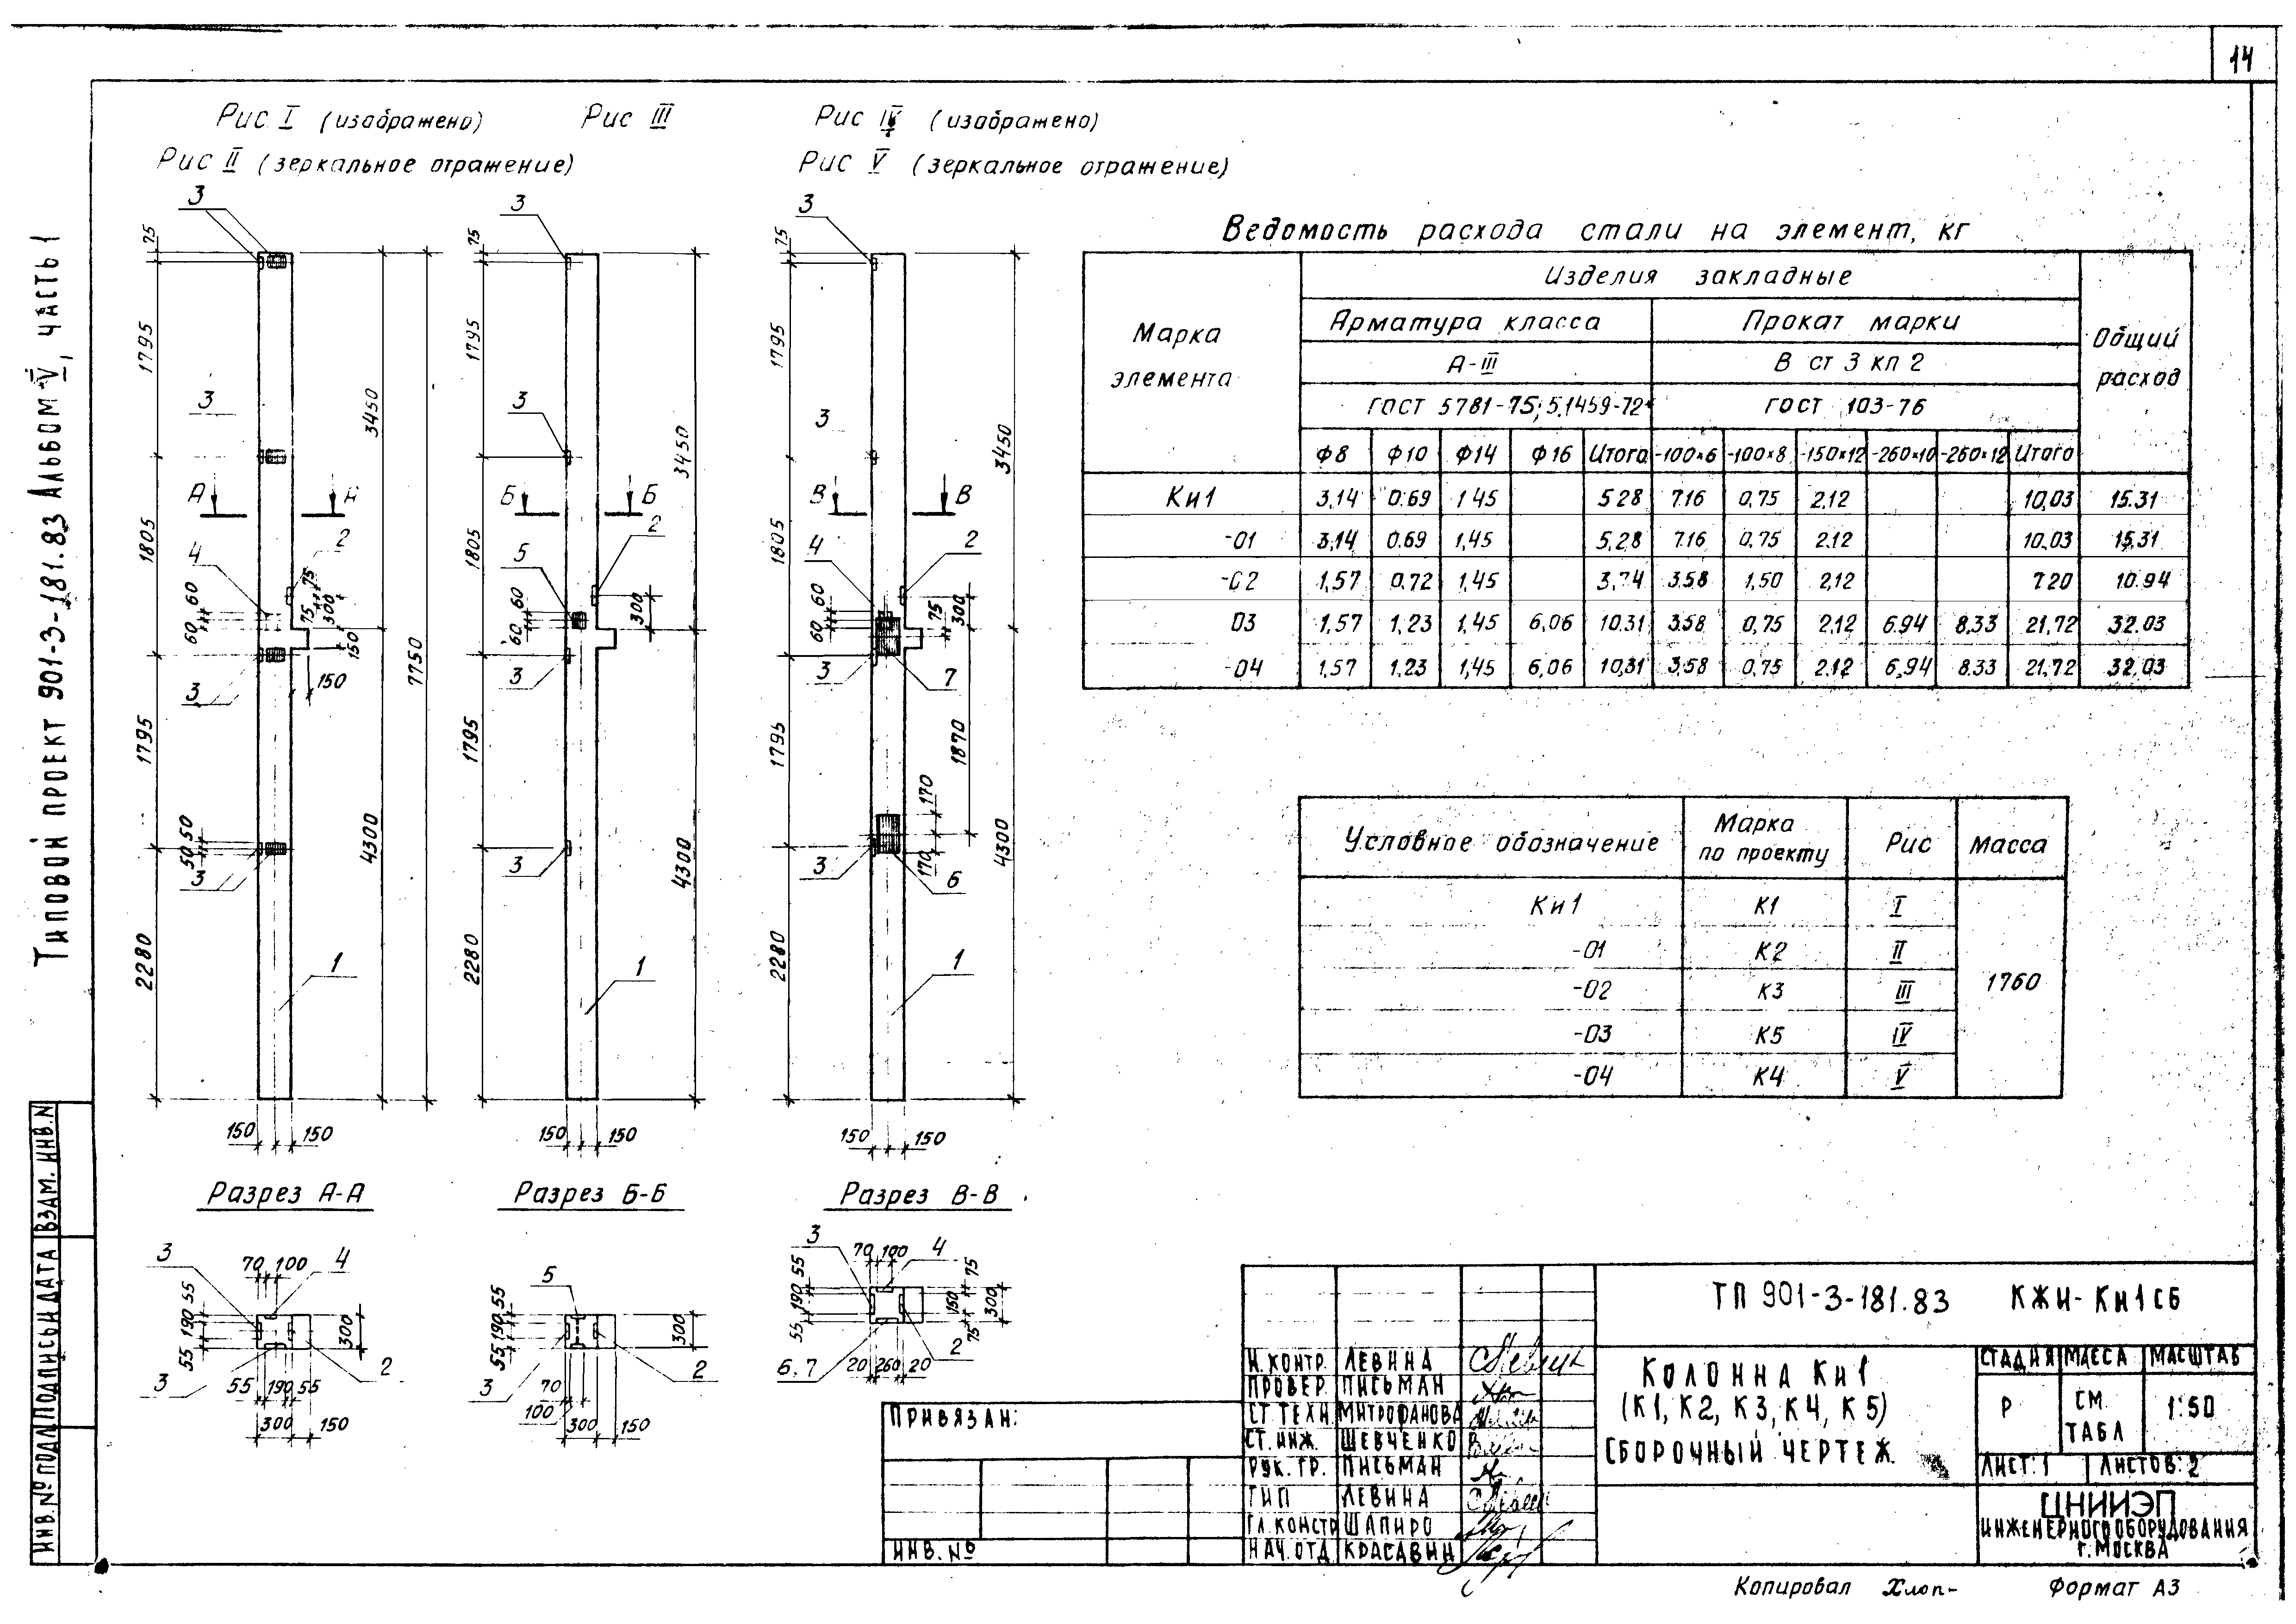 14
Типовой проект 901-3-181.83 Альбом V, часть 1
Рис. I (изображено)
Рис II (зеркальное отражение)
Рис III
Рис IV (изображено)
Рис V (зеркальное отражение)
3
75
1795
3
3450
А А
1805
4
2
60
60
75
75
300
150
3
150
7750
1795
50
50
3
4300
2280
1
150 150
3
75
1795
3
3450
Б Б
2
1805
5
60
60
300
3
1795
3
4300
2280
1
150 150
3
75
1795
3
3450
В В
1805
4
2
60
60
75
300
3
7
1795
1870
170
170
3
6
4300
2280
1
150 150
Разрез А-А
3
70 100
4
55
190
55
300
3
55 190 55
2
300 150
Разрез Б-Б
5
55
190
55
300
3
70
100
300 150
2
Разрез В-В
3
70 100
4
55
190
55
75
150
75
300
2
6,7
20 260 20
Ведомость расхода стали на элемент, кг
Марка элемента
Изделия закладные
Общий расход
Арматура класса Прокат марки
А-III В ст 3 кп 2
ГОСТ 5781-75; 5.1459-72* ГОСТ 103-76
Ф8 Ф10 Ф14 Ф16 Итого -100×6 -100×8 -150×12 -260×10 -260×12 Итого
Ки1 3,14 0.69 1.45 5.28 7.16 0,75 2,12 10,03 15.31
-01 3,14 0.69 1,45 5,28 7.16 0,75 2.12 10.03 15,31
-02 1,57 0,72 1,45 3,74 3.58 1,50 2,12 7.20 10.94
03 1,57 1,23 1,45 6,06 10.31 3.58 0,75 2,12 6.94 8.33 21,72 32.03
-04 1,57 1.23 1,45 6,06 10,31 3,58 0,75 2.12 6,94 8.33 21,72 32.03
Условное обозначение Марка по проекту Рис Масса
Ки1 К1 I
-01 К2 II
-02 К3 III
-03 К5 IV
-04 К4 V
1760
ТП 901-3-181.83 КЖИ-Ки1СБ
Н.контр. Левина
Провер. Письман
Ст.техн Митрофанова
Ст.инж. Шевченко
Рук.гр. Письман
ГИП Левина
Гл.констр Шапиро
Нач.отд Красавин
Колонна Ки1
(К1, К2, К3, К4, К5)
Сборочный чертеж.
Стадия Масса Масштаб
Р См табл 1:50
Лист: 1 Листов: 2
ЦНИИЭП
инженерного оборудования
г. Москва
Привязан:
Инв. №
Взам. инв. N
Подпись и дата
Инв. № подл
Копировал Хлоп-
Формат А3